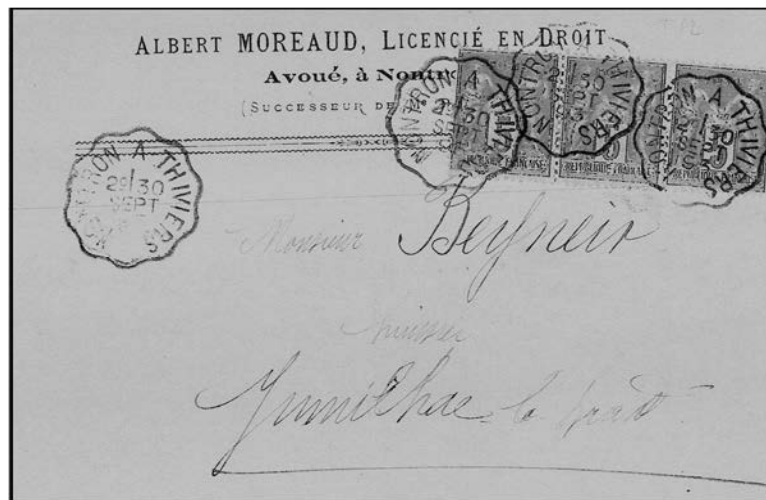 ALBERT MOREAUD, LICENCIÉ EN DROIT
Avoué, à Nontro
(SUCCESSEUR DE
NONTRON A THIVIERS
2º/30
SEPT
NONTRON A THIVIERS
2º/30
SEPT
NONTRON A THIVIERS
30
NONTRON A THIVIERS
30
5
RÉPUBLIQUE FRANÇAISE
RÉPUBLIQUE FRANÇAISE
RÉPUBLIQUE FRANÇAISE
Monsieur Beyneix
huissier
Jumilhac le Grand